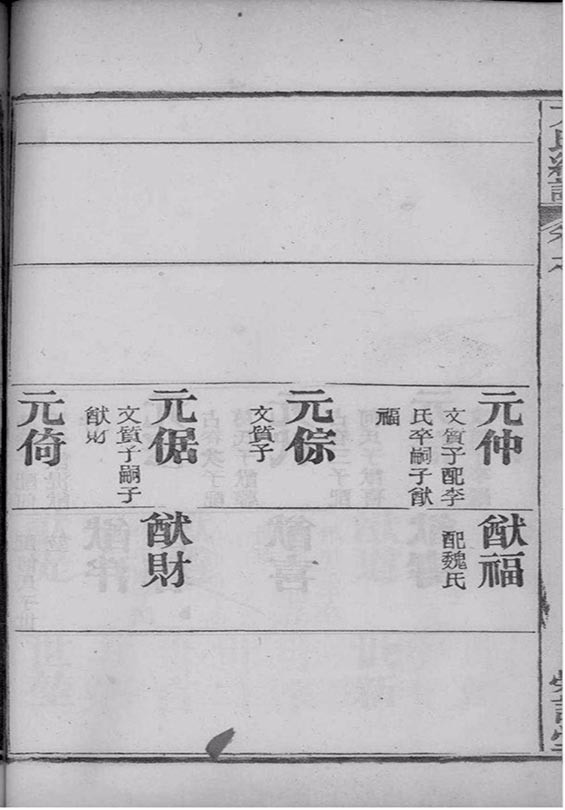 元仲
文質子配李
氏卒嗣子猷
福
元倧
文質子
元倨
文質子嗣子
猷財
元倚
猷福
配魏氏
猷財